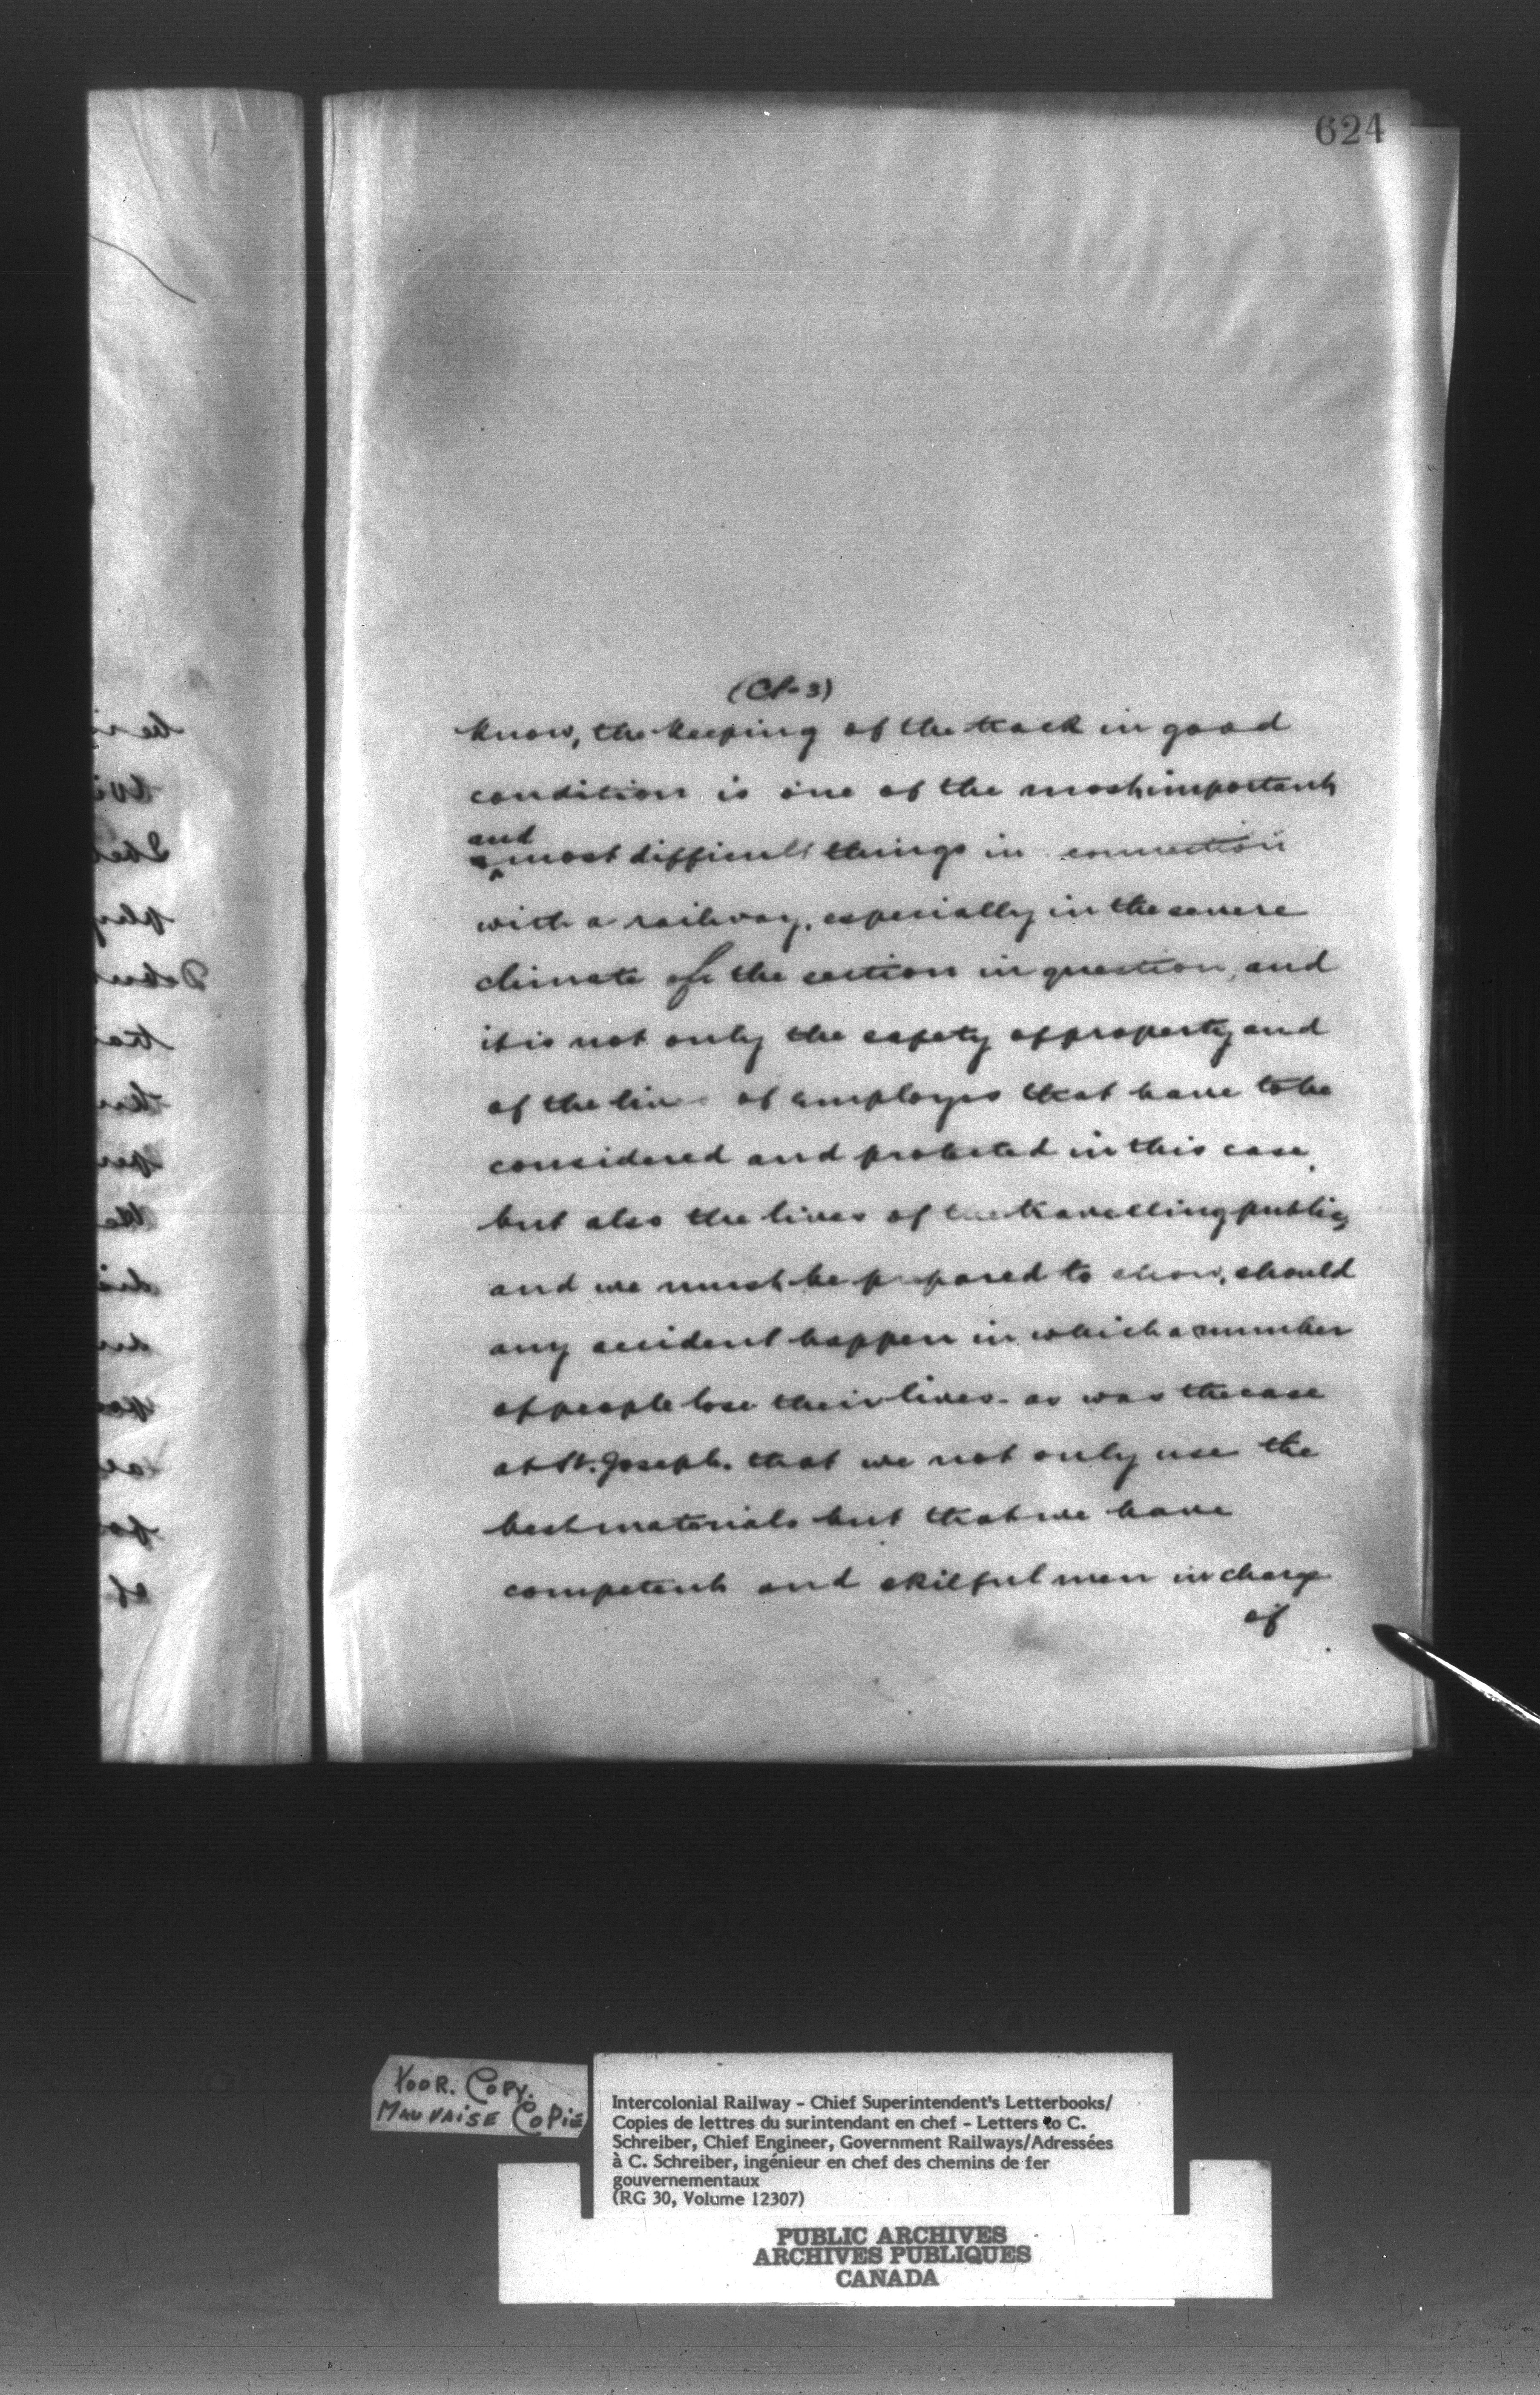 624
(Cl-3)
know, the keeping of the track in good
condition is one of the most important
and
most difficult things in connection
with a railway, especially in the severe
climate of the section in question, and
it is not only the safety of property and
of the lives of employes that have to be
considered and protected in this case,
but also the lives of the travelling public,
and we must be prepared to show, should
any accident happen in which a number
of people lose their lives - as was the case
at St. Joseph. that we not only use the
best materials but that we have
competent and skilful men in charge
of
POOR. COPY.
MAUVAISE COPIE
Intercolonial Railway - Chief Superintendent's Letterbooks/
Copies de lettres du surintendant en chef - Letters to C.
Schreiber, Chief Engineer, Government Railways/Adressées
à C. Schreiber, ingénieur en chef des chemins de fer
gouvernementaux
(RG 30, Volume 12307)
PUBLIC ARCHIVES
ARCHIVES PUBLIQUES
CANADA